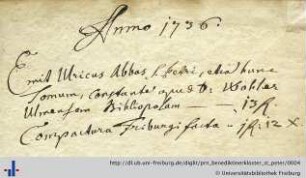 Anno 1736.
Emit Ulricus Abbas S. Petri, etiam hunc
Tomum, constante quod D. Wohler
Ulmensem Bibliopolam — 13 fl.
Compactura Friburgi facta — 1 fl: 12 X
http://dl.ub.uni-freiburg.de/diglit/prn_benediktinerkloster_st_peter/0004
© Universitätsbibliothek Freiburg